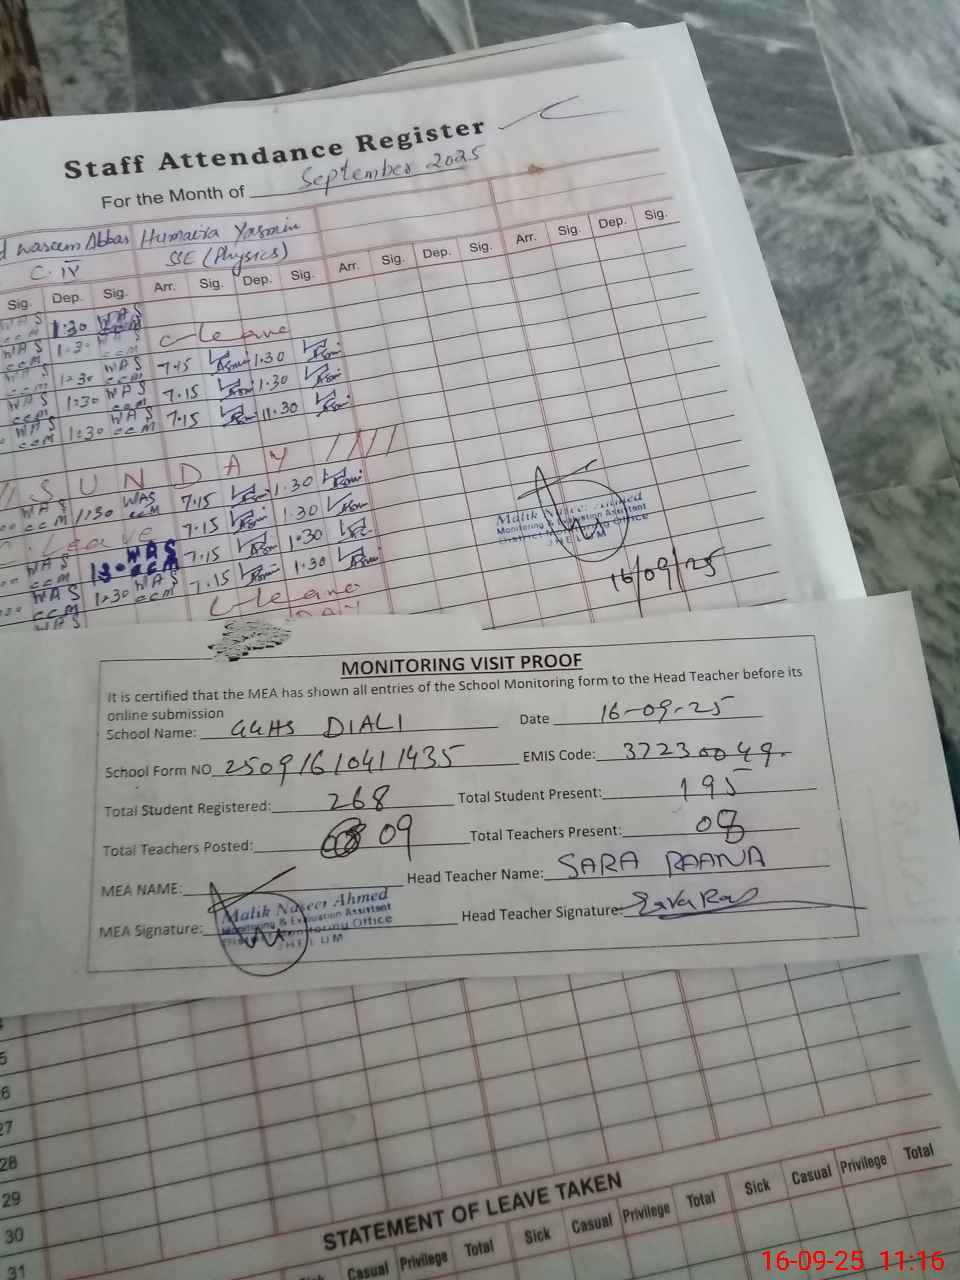 Staff Attendance Register
For the Month of September 2025
Waseem Abbas Humaira Yasmin
C.IV SSE (Physics)
Sig. Dep. Sig. Arr. Sig. Dep. Sig. Arr. Sig. Dep. Sig. Arr. Sig. Dep. Sig.
WAS 1:30 WAS
WAS 1:30 WAS C-leave
1:30 WAS 7-15 1.30
WAS 1:30 WAS 7.15 1.30
WAS 1:30 WAS 7.15 1.30
S U N D A Y
WAS 1:30 WAS 7.15 1.30
C-Leave 7.15 1.30
WAS 1:30 WAS 7.15 1.30
WAS 1:30 WAS 7.15 1.30
WAS C-leave
Malik Naseer Ahmed
Monitoring & Evaluation Assistant
District Monitoring Office
JHELUM
16/09/25
MONITORING VISIT PROOF
It is certified that the MEA has shown all entries of the School Monitoring form to the Head Teacher before its
online submission
School Name: GGHS DIALI Date 16-09-25
School Form NO 25091610411435 EMIS Code: 37230049
Total Student Registered: 268 Total Student Present: 195
Total Teachers Posted: 09 Total Teachers Present: 08
MEA NAME: Head Teacher Name: SARA RAANA
Malik Naseer Ahmed
Monitoring & Evaluation Assistant
District Monitoring Office
JHELUM
MEA Signature: Head Teacher Signature:
5
6
27
28
29
30
31
STATEMENT OF LEAVE TAKEN
Sick Casual Privilege Total Sick Casual Privilege Total Sick Casual Privilege Total
16-09-25 11:16